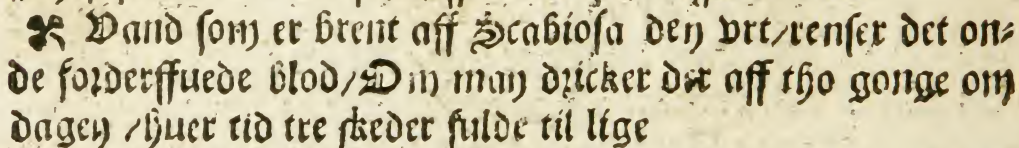 ☙ Vand som er brent aff Scabiosa den vrt/renser det on⸗
de forderffuede blod/Om man dricker der aff tho gonge om
dagen /huer tid tre skeder fulde til lige